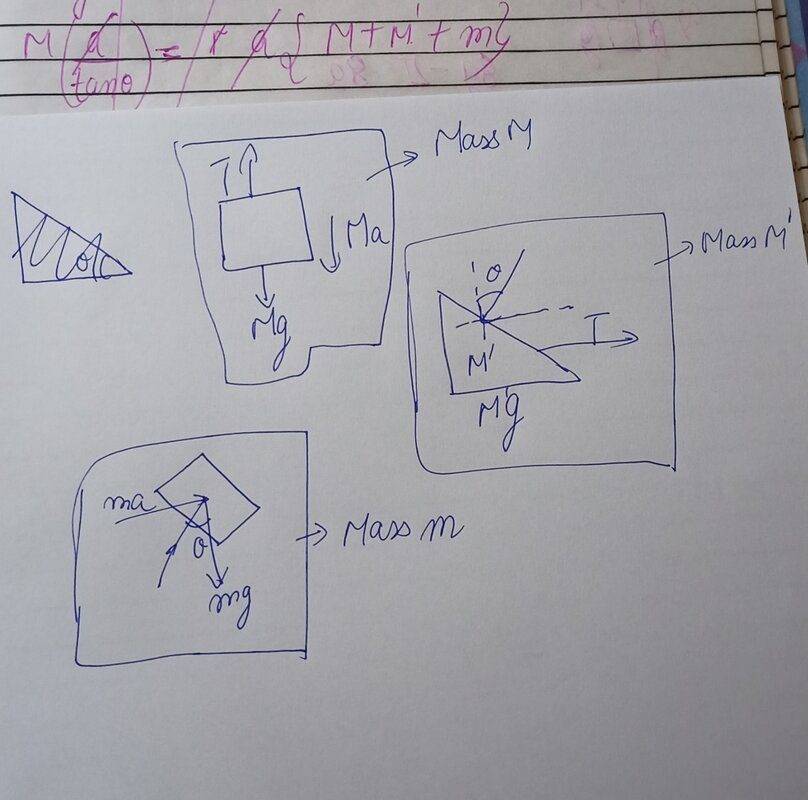 M(a/tanθ) = a { M + M' + m }
Mass M
T
Ma
Mg
Mass M'
θ
T
M'
M'g
ma
θ
mg
Mass m